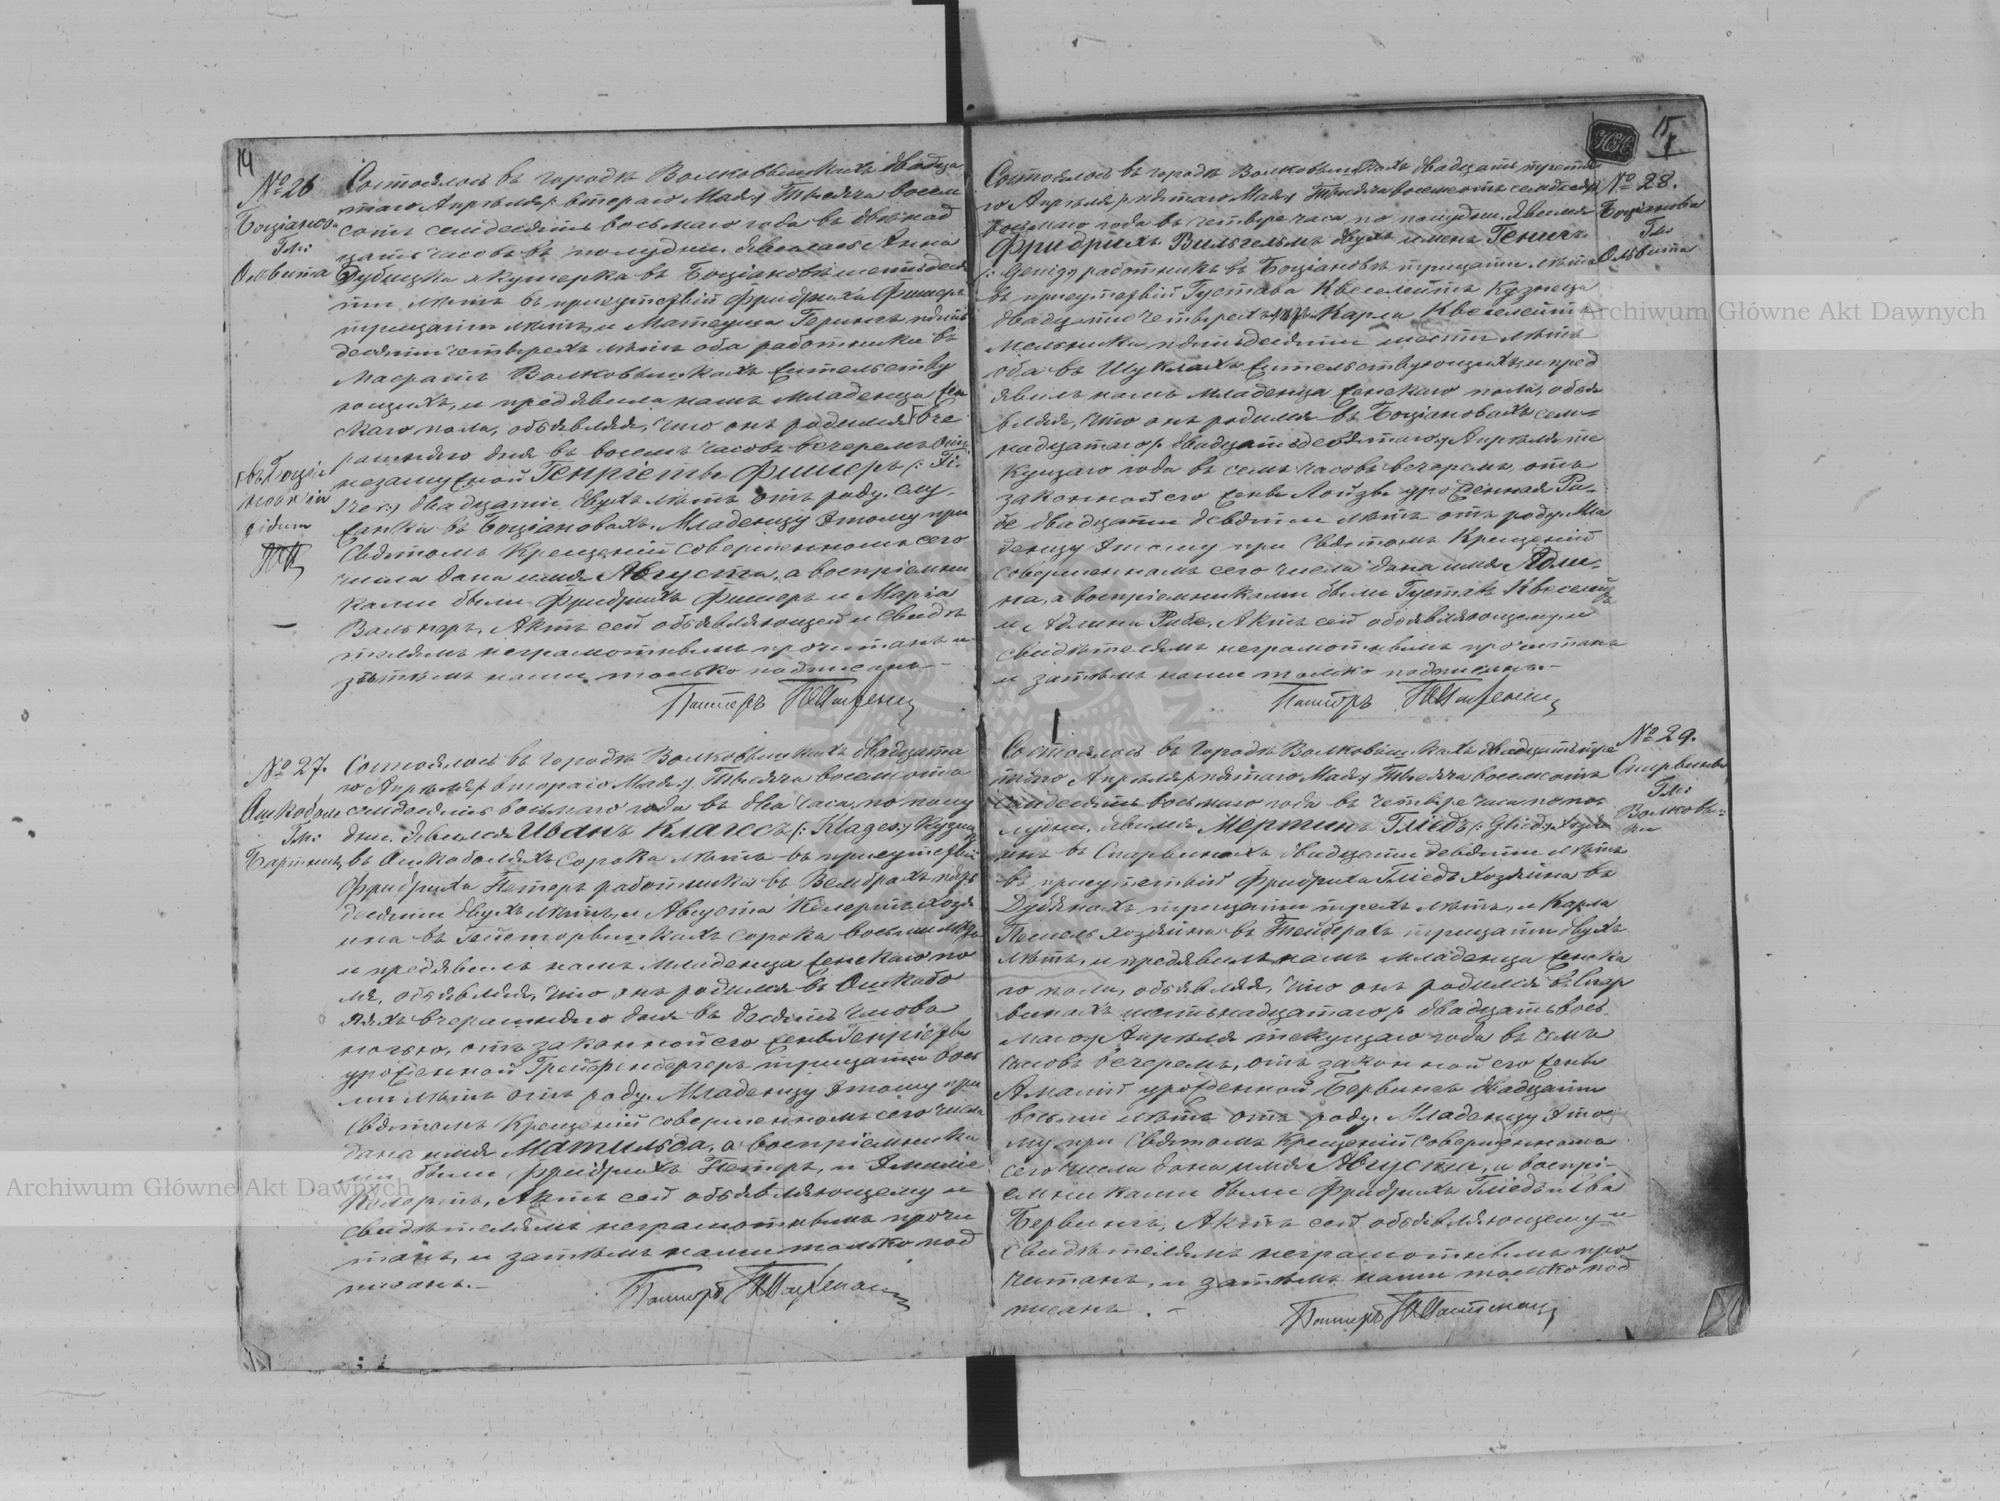 14
№ 26
Боціановъ
Гм:
Олвита
Состоялось въ городѣ Волковышкахъ двадца
таго Апрѣля /: втораго Мая :/ тысяча восем
сотъ семдесятъ восьмаго года въ двѣнад
цать часовъ въ полудни. Явилась Анна
акушерка въ Боціановѣ шестьдеся
ти лѣтъ въ присутствіи Фридриха Фишеръ
тридцати лѣтъ, и Матеуша Герингъ пять
десяти четырехъ лѣтъ оба работники въ
Волковышкахъ жительству
ющихъ, и предъявила намъ младенца жен
скаго пола, объявляя, что онъ родился вче
рашняго дня въ восемь часовъ вечеромъ отъ
незамужной Генріеты Фишеръ /: Fi-
scher :/ двадцати двухъ лѣтъ отъ роду, слу-
жанки въ Боціановахъ. Младенцу этому при
Святомъ Крещеніи совершенномъ сего
числа дано имя Августа, а воспріемни
ками были Фридрихъ Фишеръ и Марія
Вальнеръ. Актъ сей объявляющей и свидѣ
телямъ неграмотнымъ прочитанъ и
затѣмъ нами только подписанъ.
Пасторъ
№ 27.
Ошкоболи
Гм:
Бартники
Состоялось въ городѣ Волковышкахъ двадцата
го Апрѣля /: втораго Мая :/ тысяча восемсотъ
семдесятъ восьмаго года въ два часа по полу
дни. Явился Иванъ Клагесъ /: Klages :/ кузнецъ
въ Ошкоболяхъ сорока лѣтъ въ присутствіи
Фридриха Петеръ работника въ пять
десяти двухъ лѣтъ, и Августа Кёлертъ хозя
ина въ сорока восьми лѣтъ
и предъявилъ намъ младенца женскаго по
ла, объявляя, что онъ родился въ Ошкабо
ляхъ вчерашняго дня въ десять часовъ
ночью, отъ законной его жены Генріеты
урожденной Грейфенбергеръ тридцати вось
ми лѣтъ отъ роду. Младенцу этому при
Святомъ Крещеніи совершенномъ сего числа
дано имя Матильда, а воспріемника
ми были Фридрихъ Петеръ, и Эмилie
Кёлертъ. Актъ сей объявляющему и
свидѣтелямъ неграмотнымъ прочи
танъ, и затѣмъ нами только под
писанъ.
Пасторъ
15
№ 28.
Боціанова
Гм:
Олвита
Состоялось въ городѣ Волковышкахъ двадцать третья
го Апрѣля /: пятаго Мая :/ тысяча восемсотъ семдесятъ
восьмаго года въ четыре часа по полудни. Явился
Фридрихъ Вильгельмъ двухъ именъ Генигъ
/: Genig :/ работникъ въ Боціановѣ тридцати лѣтъ
въ присутствіи Густава Квеселейтъ кузнеца
двадцати четырехъ, и Карла Квеселейтъ
мельника пятьдесяти шести лѣтъ
оба въ Шуклахъ жительствующихъ, и пред
явилъ намъ младенца женскаго пола, объя
вляя, что онъ родился въ Боціановахъ сем-
надцатаго /: двадцать девятаго :/ Апрѣля те
кущаго года въ семь часовъ вечеромъ, отъ
законной его жены Лоизы урожденная Ра-
бе двадцати девяти лѣтъ отъ роду. Мла
денцу этому при Святомъ Крещеніи
совершенномъ сего числа дано имя Адли-
на, а воспріемниками были Густавъ Квеселейтъ
и Адлина Рабе. Актъ сей объявляющему и
свидѣтелямъ неграмотнымъ прочитанъ
и затѣмъ нами только подписанъ.
Пасторъ
№ 29.
Спарвины
Гм:
Волковы-
шки
Состоялось въ городѣ Волковышкахъ двадцать тре
тяго Апрѣля /: пятаго Мая :/ тысяча восемсотъ
семдесятъ восьмаго года въ четыре часа по по-
лудни. Явился Мертинъ Гліедъ /: Glied :/ хозя
инъ въ Спарвинахъ двадцати девяти лѣтъ
въ присутствіи Фридриха Гліедъ хозяина въ
Дубянахъ тридцати трехъ лѣтъ, и Карла
хозяина въ Тейберахъ тридцати двухъ
лѣтъ, и предъявилъ намъ младенца женска
го пола, объявляя, что онъ родился въ Спар
винахъ шестьнадцатаго /: двадцать вось
маго :/ Апрѣля текущаго года въ семь
часовъ вечеромъ, отъ законной его жены
Амаліи урожденной Бервингъ двадцати
восьми лѣтъ отъ роду. Младенцу это
му при Святомъ Крещеніи совершенномъ
сего числа дано имя Августа, а воспрі-
емниками были Фридрихъ Гліедъ и Ева
Бервингъ. Актъ сей объявляющему и
свидѣтелямъ неграмотнымъ про
читанъ, и затѣмъ нами только под
писанъ.
Пасторъ
Archiwum Główne Akt Dawnych
Archiwum Główne Akt Dawnych